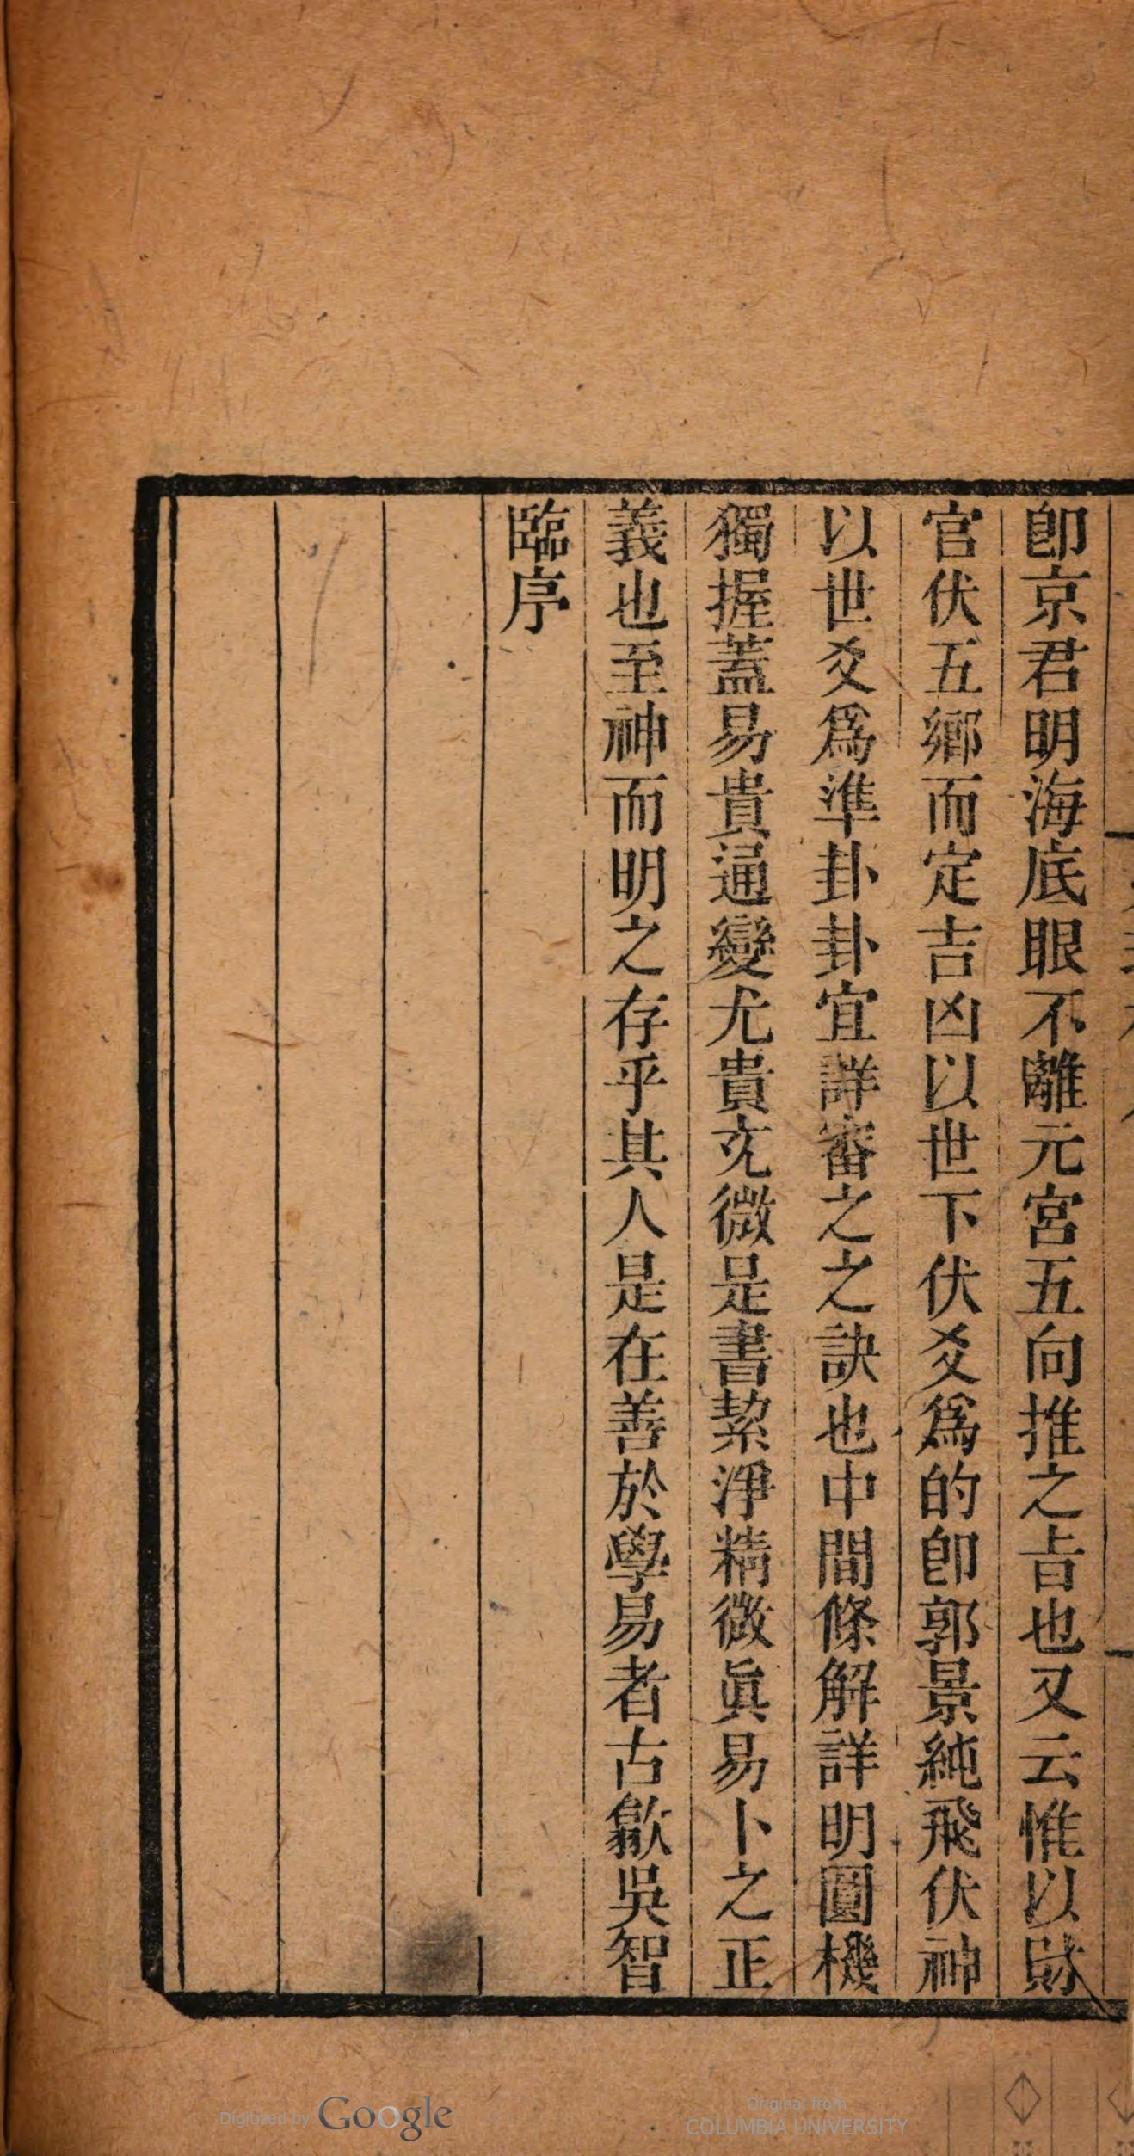 卽京君明海底眼不離元宮五向推之旨也又云惟以財
官伏五鄉而定吉凶以世下伏爻爲的卽郭景純飛伏神
以世爻爲準卦卦宜詳審之之訣也中間條解詳明圓機
獨握蓋易貴通變尤貴充微是書絜淨精微眞易卜之正
義也至神而明之存乎其人是在善於學易者古歙吳智
臨序
Digitized by Google
Original from
COLUMBIA UNIVERSITY